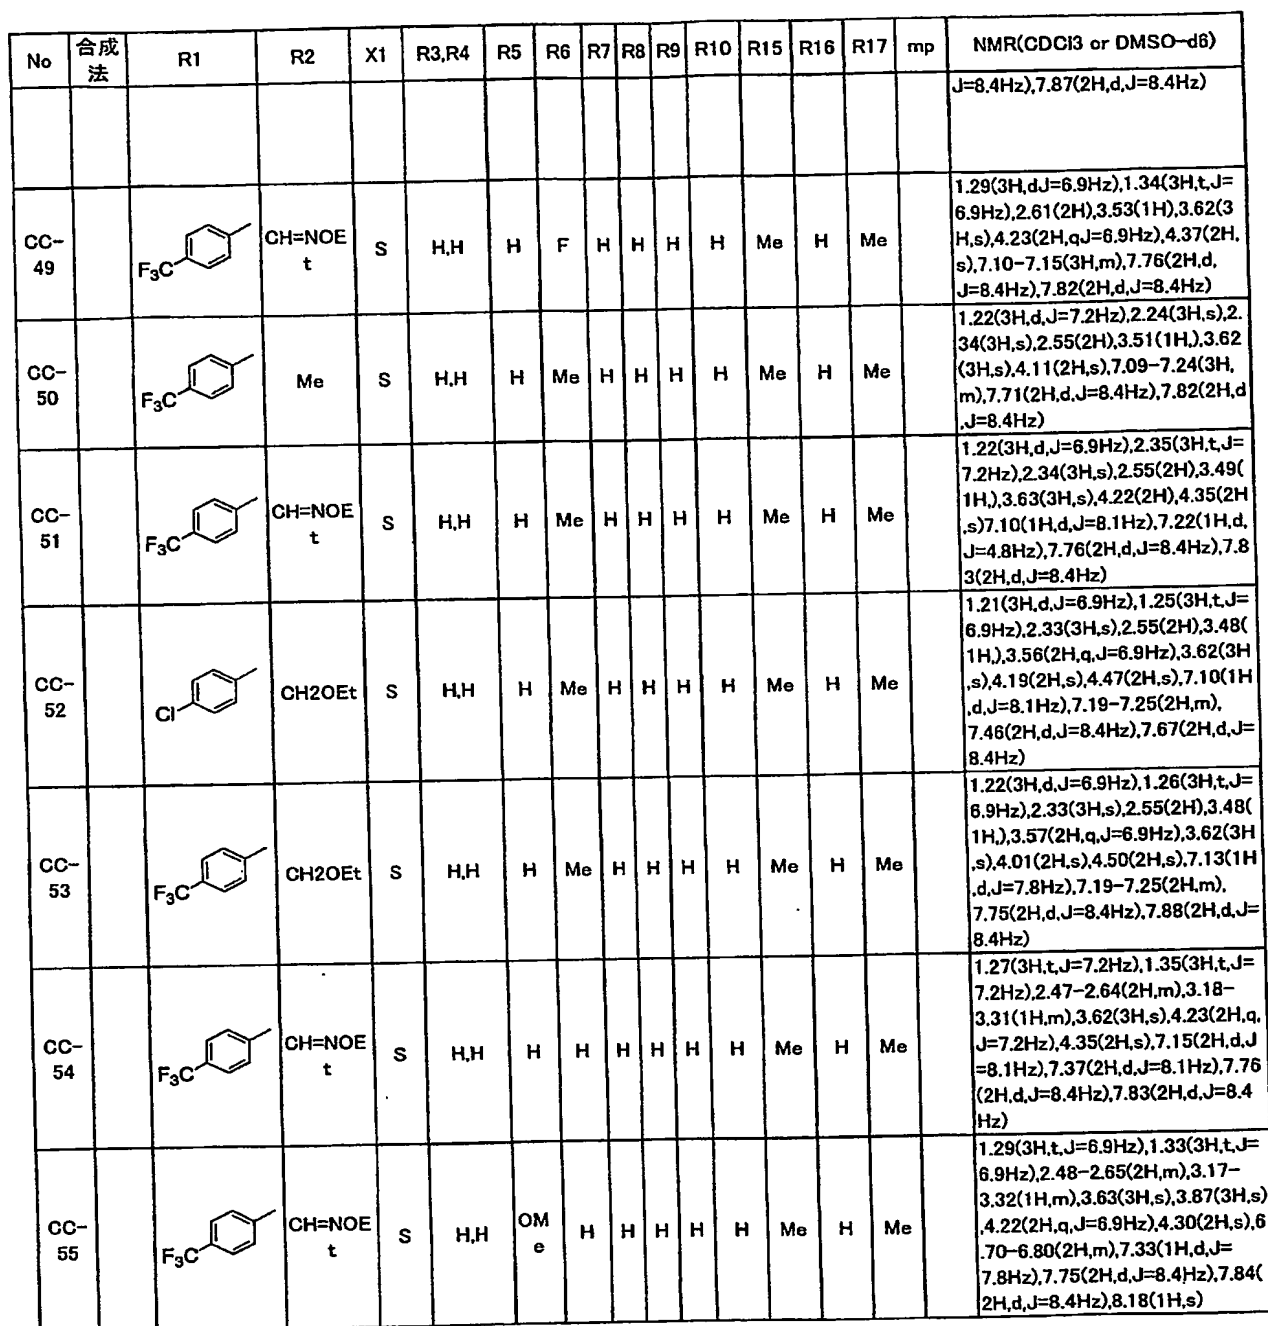 No 合成法 R1 R2 X1 R3,R4 R5 R6 R7 R8 R9 R10 R15 R16 R17 mp NMR(CDCl3 or DMSO-d6)
J=8.4Hz),7.87(2H,d,J=8.4Hz)
CC-49 F₃C CH=NOEt S H,H H F H H H H Me H Me
1.29(3H,dJ=6.9Hz),1.34(3H,t,J=
6.9Hz),2.61(2H),3.53(1H),3.62(3
H,s),4.23(2H,qJ=6.9Hz),4.37(2H,
s),7.10-7.15(3H,m),7.76(2H,d,
J=8.4Hz),7.82(2H,d,J=8.4Hz)
CC-50 F₃C Me S H,H H Me H H H H Me H Me
1.22(3H,d,J=7.2Hz),2.24(3H,s),2.
34(3H,s),2.55(2H),3.51(1H,),3.62
(3H,s),4.11(2H,s),7.09-7.24(3H,
m),7.71(2H,d,J=8.4Hz),7.82(2H,d
,J=8.4Hz)
CC-51 F₃C CH=NOEt S H,H H Me H H H H Me H Me
1.22(3H,d,J=6.9Hz),2.35(3H,t,J=
7.2Hz),2.34(3H,s),2.55(2H),3.49(
1H,),3.63(3H,s),4.22(2H),4.35(2H
,s)7.10(1H,d,J=8.1Hz),7.22(1H,d,
J=4.8Hz),7.76(2H,d,J=8.4Hz),7.8
3(2H,d,J=8.4Hz)
CC-52 Cl CH2OEt S H,H H Me H H H H Me H Me
1.21(3H,d,J=6.9Hz),1.25(3H,t,J=
6.9Hz),2.33(3H,s),2.55(2H),3.48(
1H,),3.56(2H,q,J=6.9Hz),3.62(3H
,s),4.19(2H,s),4.47(2H,s),7.10(1H
,d,J=8.1Hz),7.19-7.25(2H,m),
7.46(2H,d,J=8.4Hz),7.67(2H,d,J=
8.4Hz)
CC-53 F₃C CH2OEt S H,H H Me H H H H Me H Me
1.22(3H,d,J=6.9Hz),1.26(3H,t,J=
6.9Hz),2.33(3H,s),2.55(2H),3.48(
1H,),3.57(2H,q,J=6.9Hz),3.62(3H
,s),4.01(2H,s),4.50(2H,s),7.13(1H
,d,J=7.8Hz),7.19-7.25(2H,m),
7.75(2H,d,J=8.4Hz),7.88(2H,d,J=
8.4Hz)
CC-54 F₃C CH=NOEt S H,H H H H H H H Me H Me
1.27(3H,t,J=7.2Hz),1.35(3H,t,J=
7.2Hz),2.47-2.64(2H,m),3.18-
3.31(1H,m),3.62(3H,s),4.23(2H,q,
J=7.2Hz),4.35(2H,s),7.15(2H,d,J
=8.1Hz),7.37(2H,d,J=8.1Hz),7.76
(2H,d,J=8.4Hz),7.83(2H,d,J=8.4
Hz)
CC-55 F₃C CH=NOEt S H,H OMe H H H H H Me H Me
1.29(3H,t,J=6.9Hz),1.33(3H,t,J=
6.9Hz),2.48-2.65(2H,m),3.17-
3.32(1H,m),3.63(3H,s),3.87(3H,s)
,4.22(2H,q,J=6.9Hz),4.30(2H,s),6
.70-6.80(2H,m),7.33(1H,d,J=
7.8Hz),7.75(2H,d,J=8.4Hz),7.84(
2H,d,J=8.4Hz),8.18(1H,s)